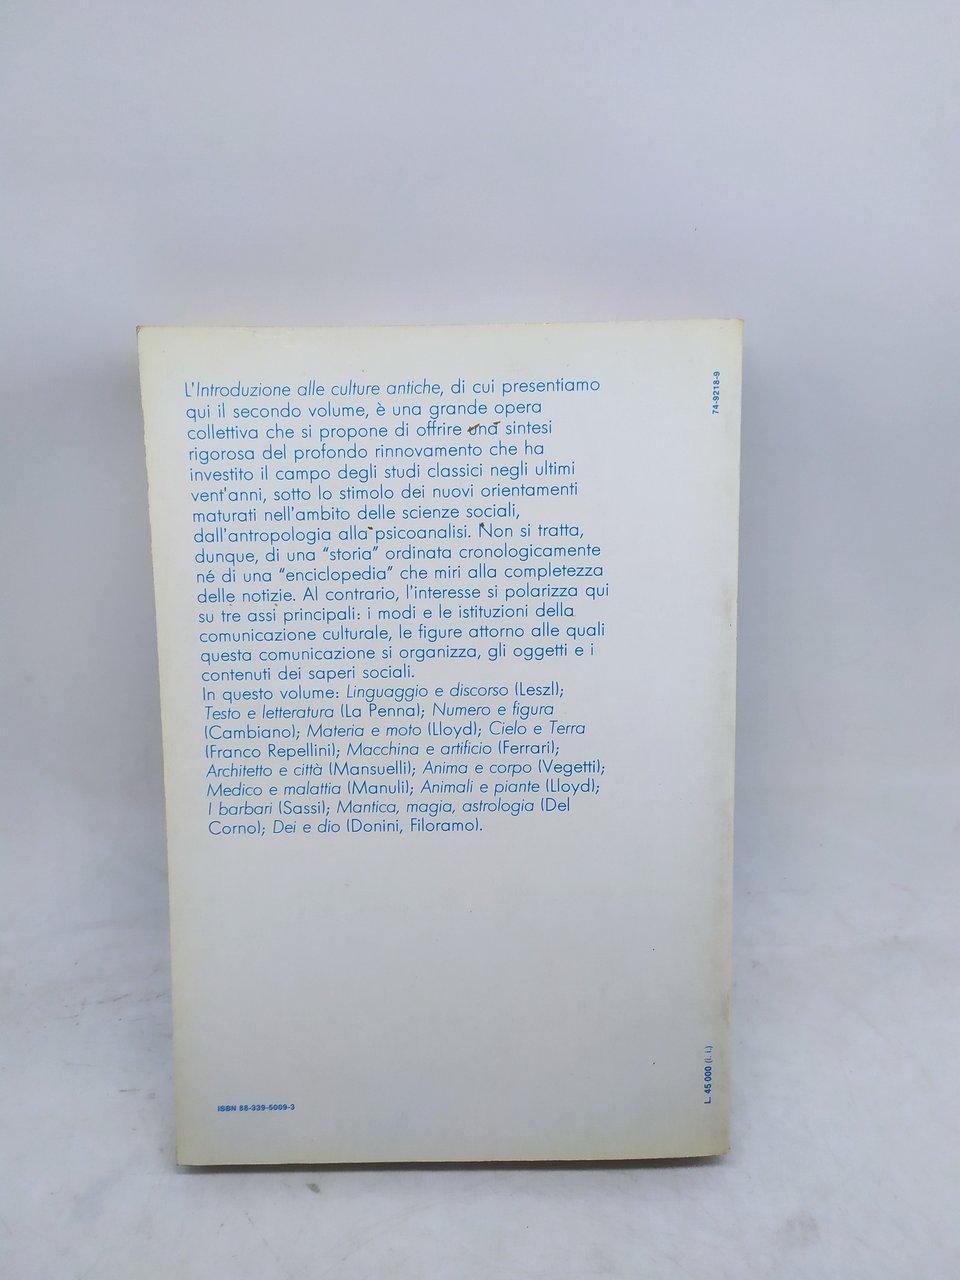 L'Introduzione alle culture antiche, di cui presentiamo
qui il secondo volume, è una grande opera
collettiva che si propone di offrire una sintesi
rigorosa del profondo rinnovamento che ha
investito il campo degli studi classici negli ultimi
vent'anni, sotto lo stimolo dei nuovi orientamenti
maturati nell'ambito delle scienze sociali,
dall'antropologia alla psicoanalisi. Non si tratta,
dunque, di una “storia” ordinata cronologicamente
né di una “enciclopedia” che miri alla completezza
delle notizie. Al contrario, l'interesse si polarizza qui
su tre assi principali: i modi e le istituzioni della
comunicazione culturale, le figure attorno alle quali
questa comunicazione si organizza, gli oggetti e i
contenuti dei saperi sociali.
In questo volume: Linguaggio e discorso (Leszl);
Testo e letteratura (La Penna); Numero e figura
(Cambiano); Materia e moto (Lloyd); Cielo e Terra
(Franco Repellini); Macchina e artificio (Ferrari);
Architetto e città (Mansuelli); Anima e corpo (Vegetti);
Medico e malattia (Manuli); Animali e piante (Lloyd);
I barbari (Sassi); Mantica, magia, astrologia (Del
Corno); Dei e dio (Donini, Filoramo).
74-9218-9
L. 45 000 (i. i.)
ISBN 88-339-5009-3